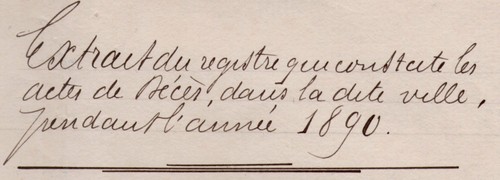 Extrait du registre qui constate les
actes de Décès, dans la dite ville,
pendant l'année 1890.